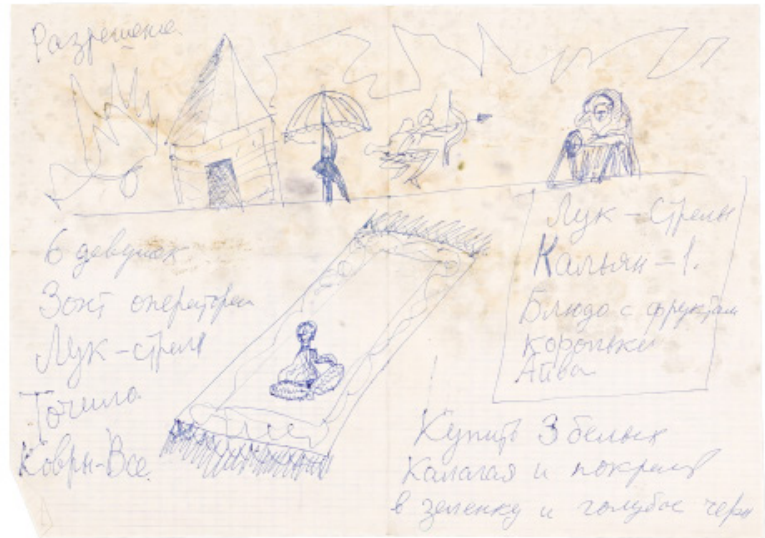 Разрешение.
6 девушек
Зонт
Лук-стрелы
Точило
Ковры-Все.
Лук - Стрелы
Кальян - 1.
Блюдо с фруктам
Коропьки
Айва
Купить 3 белых
и
в зеленку и голубое черн